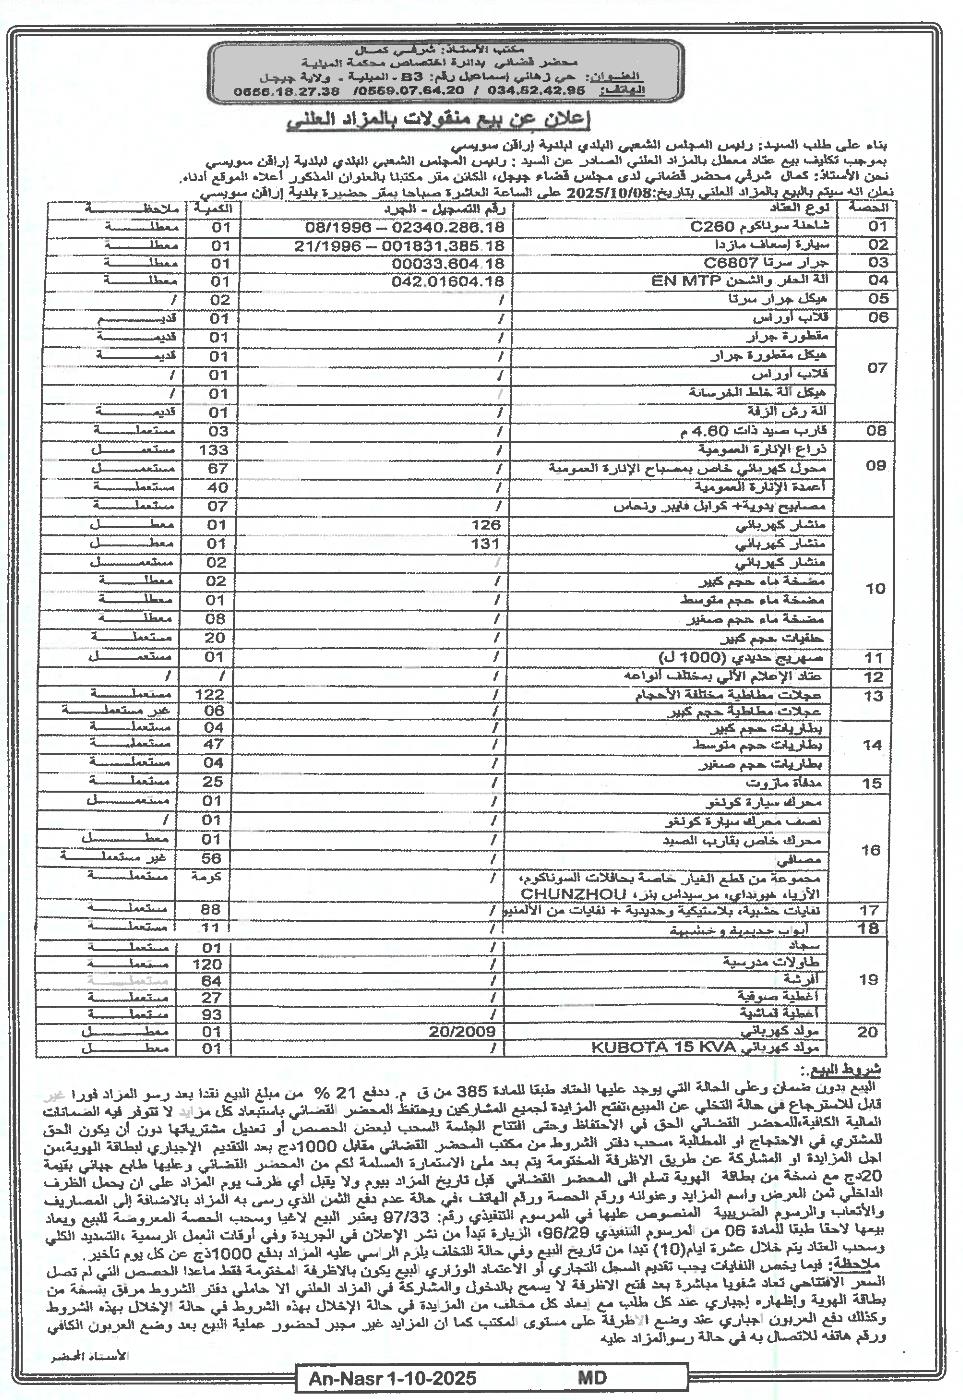 مكتب الأستاذ: شرفي كمال
محضر قضائي بدائرة اختصاص محكمة الميلية
العنوان: حي زهاني إسماعيل رقم: B3 - الميلية - ولاية جيجل
الهاتف: 034.52.42.95 / 0559.07.64.20/ 0656.18.27.38
إعلان عن بيع منقولات بالمزاد العلني
بناء على طلب السيد: رئيس المجلس الشعبي البلدي لبلدية إراقن سويسي
بموجب تكليف بيع عتاد معطل بالمزاد العلني الصادر عن السيد : رئيس المجلس الشعبي البلدي لبلدية إراقن سويسي
نحن الأستاذ: كمال شرفي محضر قضائي لدى مجلس قضاء جيجل، الكائن مقر مكتبنا بالعنوان المذكور أعلاه. الموقع أدناه.
نعلن انه سيتم بالبيع بالمزاد العلني بتاريخ:2025/10/08 على الساعة العاشرة صباحا بمقر حضيرة بلدية إراقن سويسي
الحصة نوع العتاد رقم التسجيل - الجرد الكمية ملاحظة
01 شاحنة سوناكوم C260 02340.286.18 – 08/1996 01 معطلة
02 سيارة إسعاف مازدا 001831.385.18 – 21/1996 01 معطلة
03 جرار سرتا C6807 00033.604.18 01 معطلة
04 آلة الحفر والشحن EN MTP 042.01604.18 01 معطلة
05 هيكل جرار سرتا / 02 /
06 قلاب أوراس / 01 قديم
07 مقطورة جرار / 01 قديمة
هيكل مقطورة جرار / 01 قديمة
قلاب أوراس / 01 /
هيكل آلة خلط الخرسانة / 01 /
آلة رش الزفة / 01 قديمة
08 قارب صيد ذات 4.60 م / 03 مستعملة
09 ذراع الإنارة العمومية / 133 مستعمل
محول كهربائي خاص بمصباح الإنارة العمومية / 67 مستعمل
أعمدة الإنارة العمومية / 40 مستعملة
مصابيح يدوية+ كوابل فايبر ونحاس / 07 مستعملة
10 منشار كهربائي 126 01 معطل
منشار كهربائي 131 01 معطل
منشار كهربائي / 02 مستعمل
مضخة ماء حجم كبير / 02 معطلة
مضخة ماء حجم متوسط / 01 معطلة
مضخة ماء حجم صغير / 08 معطلة
حلقيات حجم كبير / 20 مستعملة
11 صهريج حديدي (1000 ل) / 01 مستعمل
12 عتاد الإعلام الآلي بمختلف أنواعه / / /
13 عجلات مطاطية مختلفة الأحجام / 122 مستعملة
عجلات مطاطية حجم كبير / 06 غير مستعملة
14 بطاريات حجم كبير / 04 مستعملة
بطاريات حجم متوسط / 47 مستعملة
بطاريات حجم صغير / 04 مستعملة
15 مدفأة مازوت / 25 مستعملة
16 محرك سيارة كونغو / 01 مستعمل
نصف محرك سيارة كونغو / 01 /
محرك خاص بقارب الصيد / 01 معطل
مصافي / 56 غير مستعملة
مجموعة من قطع الغيار خاصة بحافلات السوناكوم، / كومة مستعملة
الأزيا، هيونداي، مرسيداس بنز، CHUNZHOU
17 نفايات خشبية، بلاستيكية وحديدية + نفايات من الألمنيو / 88 مستعملة
18 أبواب حديدية وخشبية / 11 مستعملة
19 سجاد / 01 مستعملة
طاولات مدرسية / 120 مستعملة
أفرشة / 64 مستعملة
أغطية صوفية / 27 مستعملة
أغطية قماشية / 93 مستعملة
20 مولد كهربائي 20/2009 01 معطل
مولد كهربائي KUBOTA 15 KVA / 01 معطل
شروط البيع:
البيع بدون ضمان وعلى الحالة التي يوجد عليها العتاد طبقا للمادة 385 من ق م. ددفع 21 % من مبلغ البيع نقدا بعد رسو المزاد فورا غير
قابل للاسترجاع في حالة التخلي عن المبيع،تفتح المزايدة لجميع المشاركين ويحتفظ المحضر القضائي باستبعاد كل مزايد لا تتوفر فيه الضمانات
المالية الكافية،للمحضر القضائي الحق في الاحتفاظ وحتى افتتاح الجلسة السحب لبعض الحصص أو تعديل مشترياتها دون أن يكون الحق
للمشتري في الاحتجاج او المطالبة ،سحب دفتر الشروط من مكتب المحضر القضائي مقابل 1000دج بعد التقديم الإجباري لبطاقة الهوية،من
اجل المزايدة او المشاركة عن طريق الاظرفة المختومة يتم بعد ملئ الاستمارة المسلمة لكم من المحضر القضائي وعليها طابع جبائي بقيمة
20دج مع نسخة من بطاقة الهوية تسلم الى المحضر القضائي قبل تاريخ المزاد بيوم ولا يقبل أي ظرف يوم المزاد على ان يحمل الظرف
الداخلي ثمن العرض واسم المزايد وعنوانه ورقم الحصة ورقم الهاتف ،في حالة عدم دفع الثمن الذي رسى به المزاد بالاضافة إلى المصاريف
والأتعاب والرسوم الضريبية المنصوص عليها في المرسوم التنفيذي رقم: 97/33 يعتبر البيع لاغيا وسحب الحصة المعروضة للبيع ويعاد
بيعها لاحقا طبقا للمادة 06 من المرسوم التنفيذي 96/29، الزيارة تبدأ من نشر الإعلان في الجريدة وفي أوقات العمل الرسمية ،التسديد الكلي
وسحب العتاد يتم خلال عشرة ايام(10) تبدأ من تاريخ البيع وفي حالة التخلف يلزم الراسي عليه المزاد بدفع 1000دج عن كل يوم تأخير.
ملاحظة: فيما يخص النفايات يجب تقديم السجل التجاري أو الاعتماد الوزاري البيع يكون بالاظرفة المختومة فقط ماعدا الحصص التي لم تصل
السعر الافتتاحي تعاد شفويا مباشرة بعد فتح الاظرفة لا يسمح بالدخول والمشاركة في المزاد العلني الا حاملي دفتر الشروط مرفق بنسخة من
بطاقة الهوية وإظهاره إجباري عند كل طلب مع إبعاد كل مخالف من المزايدة في حالة الإخلال بهذه الشروط في حالة الإخلال بهذه الشروط
وكذلك دفع العربون اجباري عند وضع الاظرفة على مستوى المكتب كما ان المزايد غير مجبر لحضور عملية البيع بعد وضع العربون الكافي
ورقم هاتفه للاتصال به في حالة رسو المزاد عليه
الأستاذ المحضر
An-Nasr 1-10-2025 MD